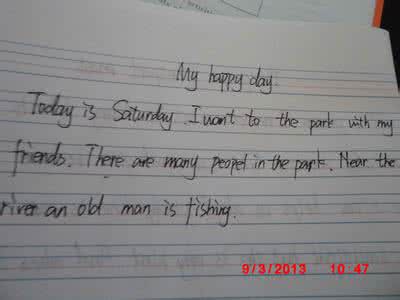 My happy day
Today is Saturday. I want to the park with my
friends. There are many peopel in the park. Near the
river an old man is fishing.
9/3/2013 10:47